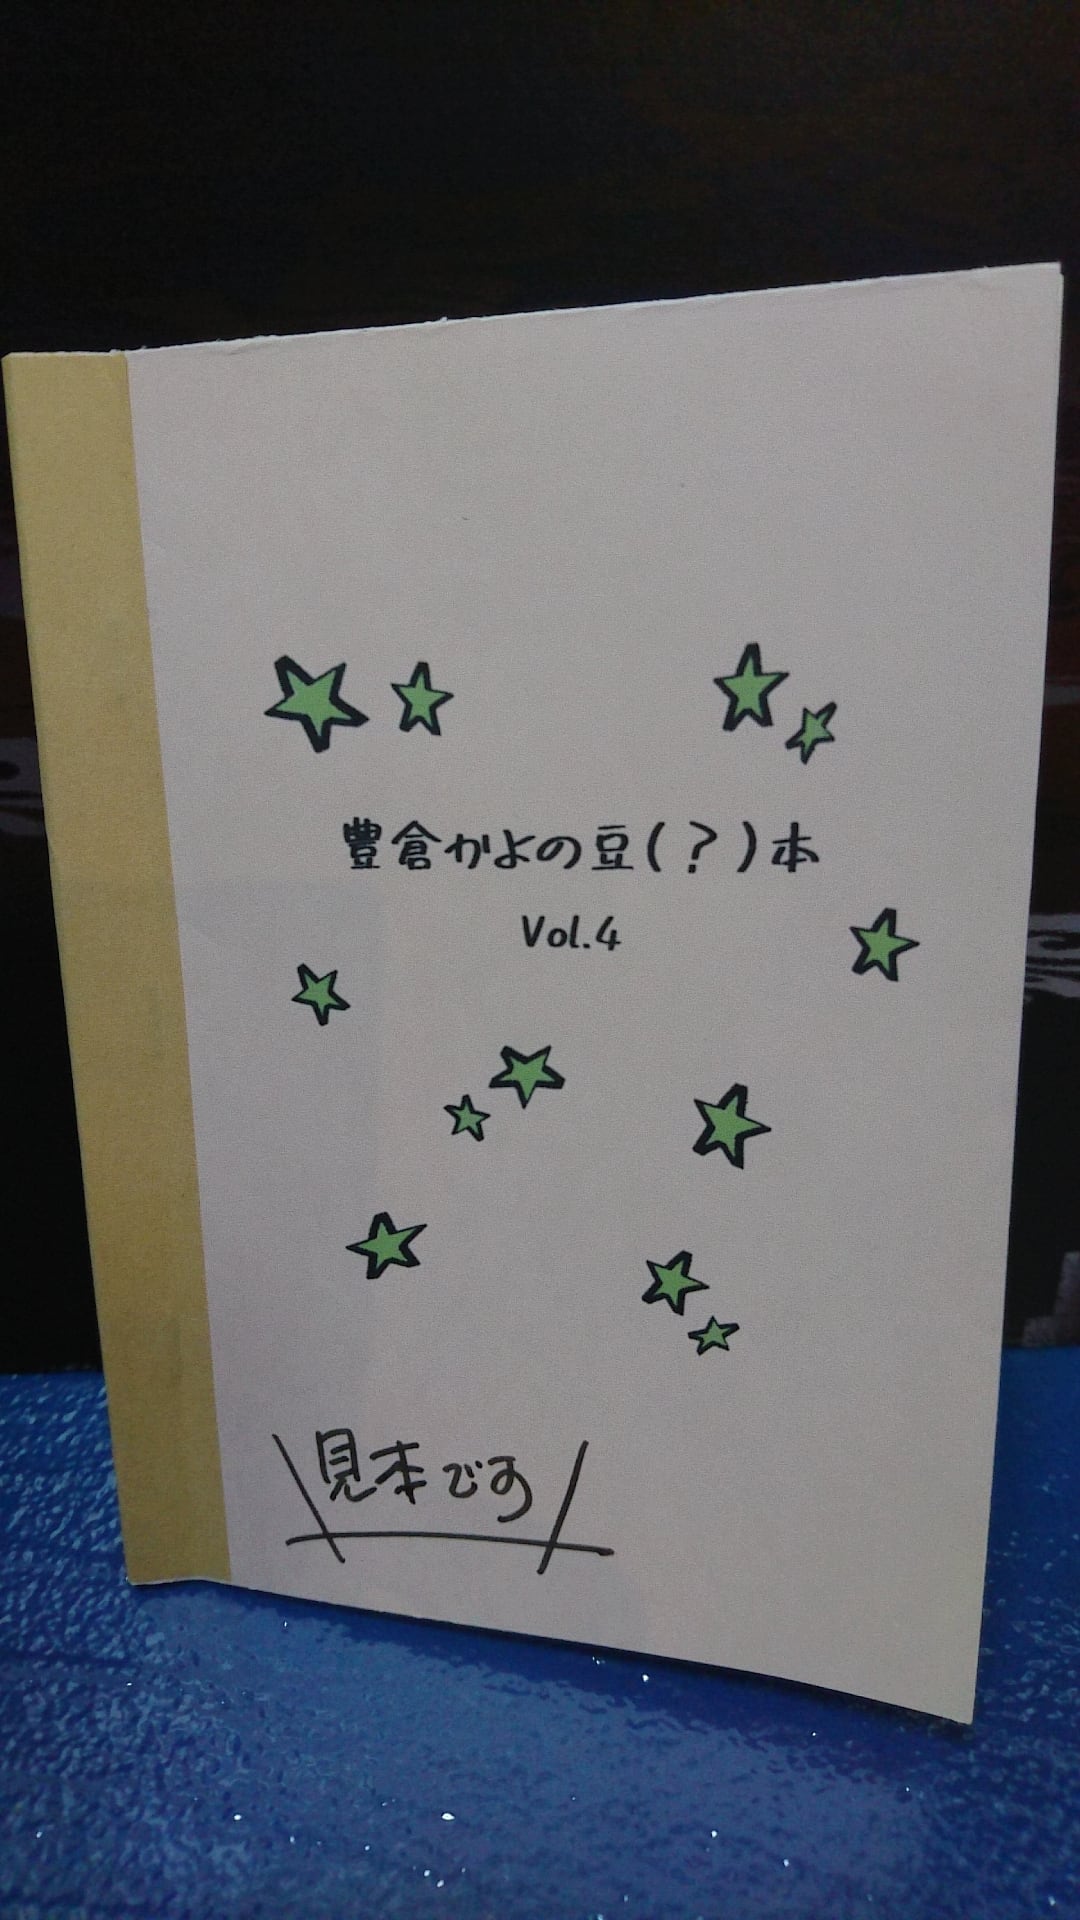 豊倉かよの豆(?)本
Vol.4
見本です